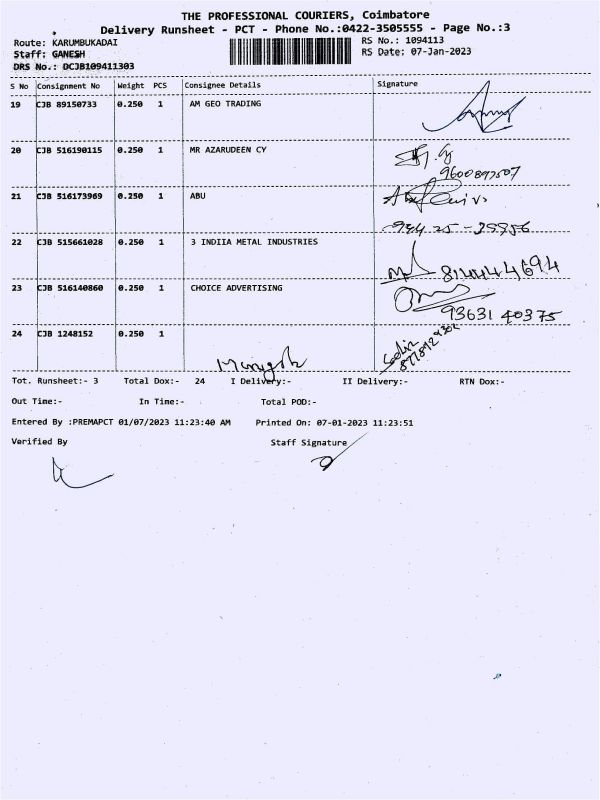 THE PROFESSIONAL COURIERS, Coimbatore
Delivery Runsheet - PCT - Phone No.:0422-3505555 - Page No.:3
Route: KARUMBUKADAI
RS No.: 1094113
Staff: GANESH
RS Date: 07-Jan-2023
DRS No.: DCJB109411303
S No Consignment No Weight PCS Consignee Details Signature
19 CJB 89150733 0.250 1 AM GEO TRADING
20 CJB 516190115 0.250 1 MR AZARUDEEN CY
9600897507
21 CJB 516173969 0.250 1 ABU
22 CJB 515661028 0.250 1 3 INDIIA METAL INDUSTRIES
8144444694
23 CJB 516140860 0.250 1 CHOICE ADVERTISING
93631 40375
24 CJB 1248152 0.250 1
Tot. Runsheet:- 3 Total Dox:- 24 I Delivery:- II Delivery:- RTN Dox:-
Out Time:- In Time:- Total POD:-
Entered By :PREMAPCT 01/07/2023 11:23:40 AM Printed On: 07-01-2023 11:23:51
Verified By Staff Signature